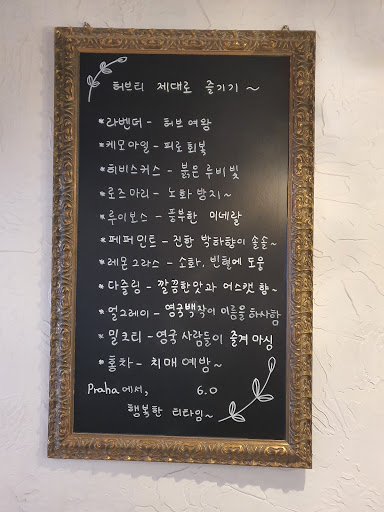 허브티 제대로 즐기기 ~
* 라벤더 - 허브 여왕
* 케모마일 - 피로회복
* 히비스커스 - 붉은 루비 빛
* 로즈마리 - 노화 방지~
* 루이보스 - 풍부한 미네랄
* 페퍼민트 - 진한 박하향이 솔솔~
* 레몬그라스 - 소화, 빈혈에 도움
* 다즐링 - 깔끔한 맛과 머스캣 향~
* 얼그레이 - 영국백작이 이름을 하사함
* 밀크티 - 영국 사람들이 즐겨 마심
* 홍차 - 치매 예방~
Praha에서, 6.0
행복한 티타임~